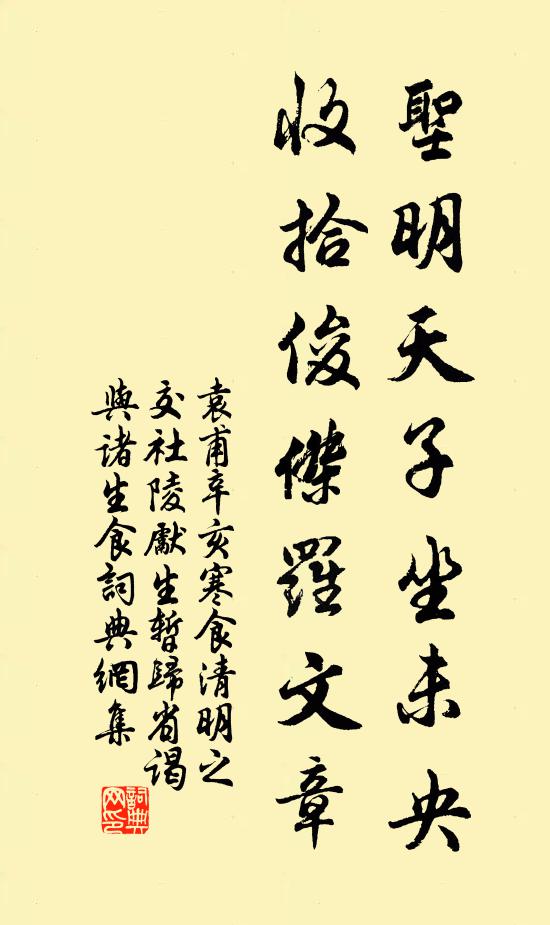 聖明天子坐未央
收拾俊傑羅文章
袁甫辛亥寒食清明之
交社陵獻生暫歸省謁
與諸生食詞典網集
詞典网印